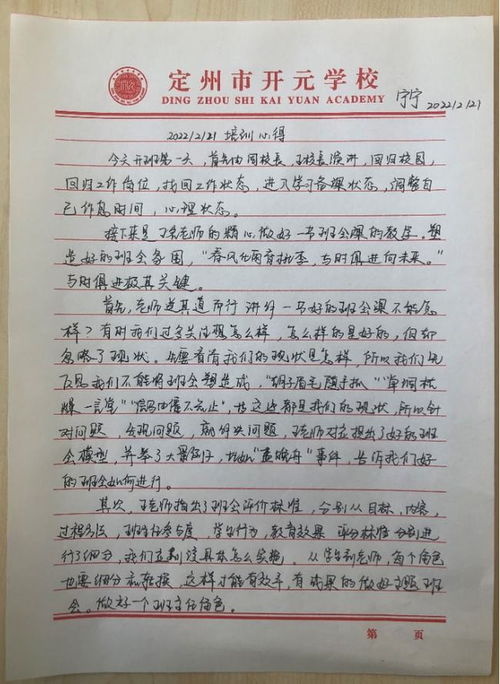 定州市开元学校
DING ZHOU SHI KAI YUAN ACADEMY
宁宁 2022/2/21
2022/2/21 培训心得
今天开班第一天，首先由闫校长、王校长演讲，回归校园，
回归工作岗位，找回工作状态，进入学习备课状态，调整自
己作息时间，心理状态。
接下来是 老师的精心做好一节班会课的教导，塑
造好的班会氛围，“春风化雨育桃李，与时俱进向未来。”
与时俱进极其关键。
首先，老师逆其道而行 讲解一节好的班会课不能怎
样？有时我们过多关注想怎么样，怎么样的是好的，但却
忽略了现状。先要看看我们的现状是怎样，所以我们
不能将班会塑造成，“胡子眉毛随手抓”“惊堂木
一言堂”“信马由缰不元止”，这些都是我们的现状，所以针
对问题，发现问题，解决问题，王老师对应提出了好的班
会模型，并举了大量例子，比如“孟晚舟”事件，告诉我们好
的班会如何进行。
其次，王老师指出了班会评价标准，分别从目标，内容，
过程方法，班级参与度，学生行为，教育效果 评分标准 分别进
行了细分，我们立刻 具体怎么实施。从学生到老师，每个角色
也要细分和衔接，这样才能有效率，有成果的做好主题班
会。做好一个班主任角色。
第 页